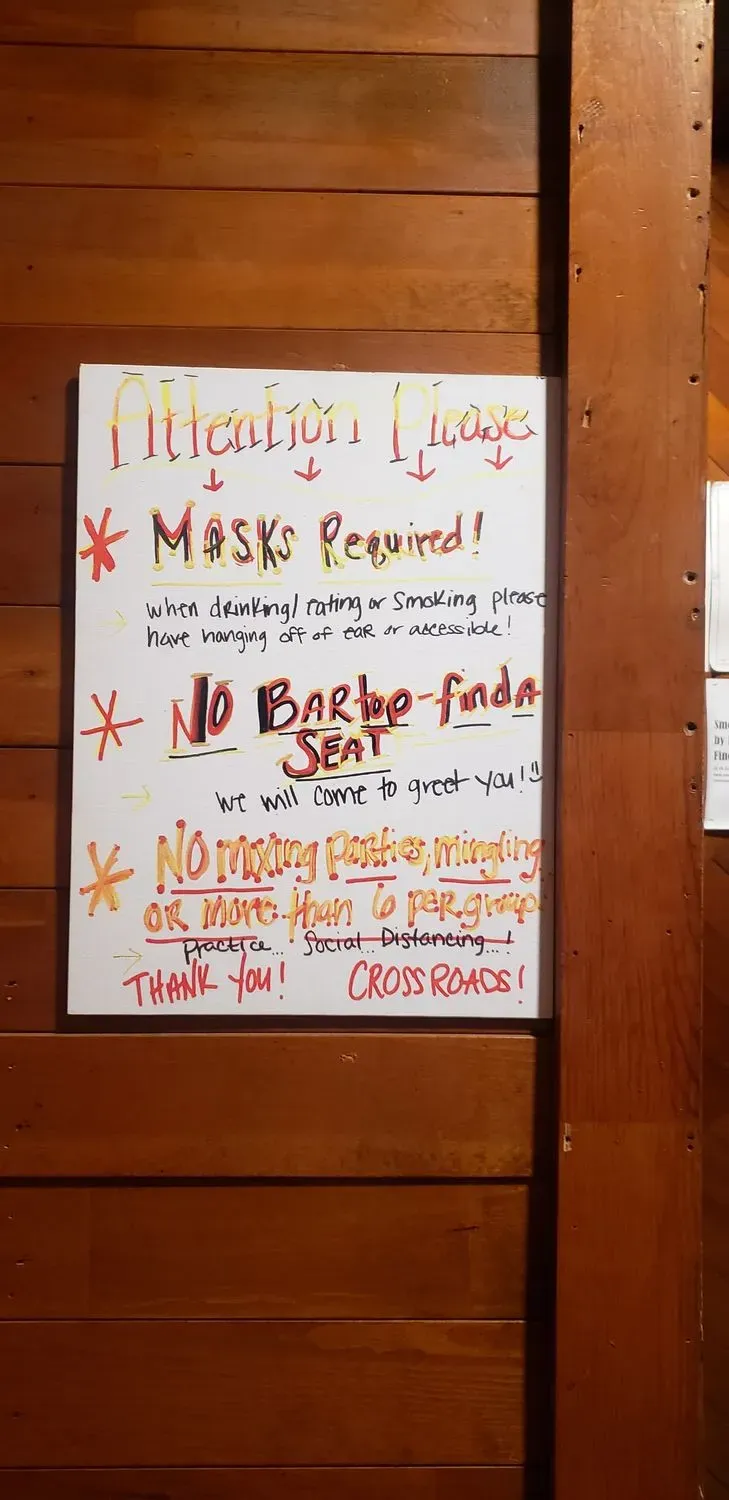 Attention Please
* MASKS Required!
when drinking/ eating or smoking please
have hanging off of ear or accessible!
* NO BARtop - find A
SEAT
we will come to greet you!!
* NO mixing parties, mingling
OR more than 6 per group.
practice... Social... Distancing...!
THANK you! CROSSROADS!
Sm
by
Fin